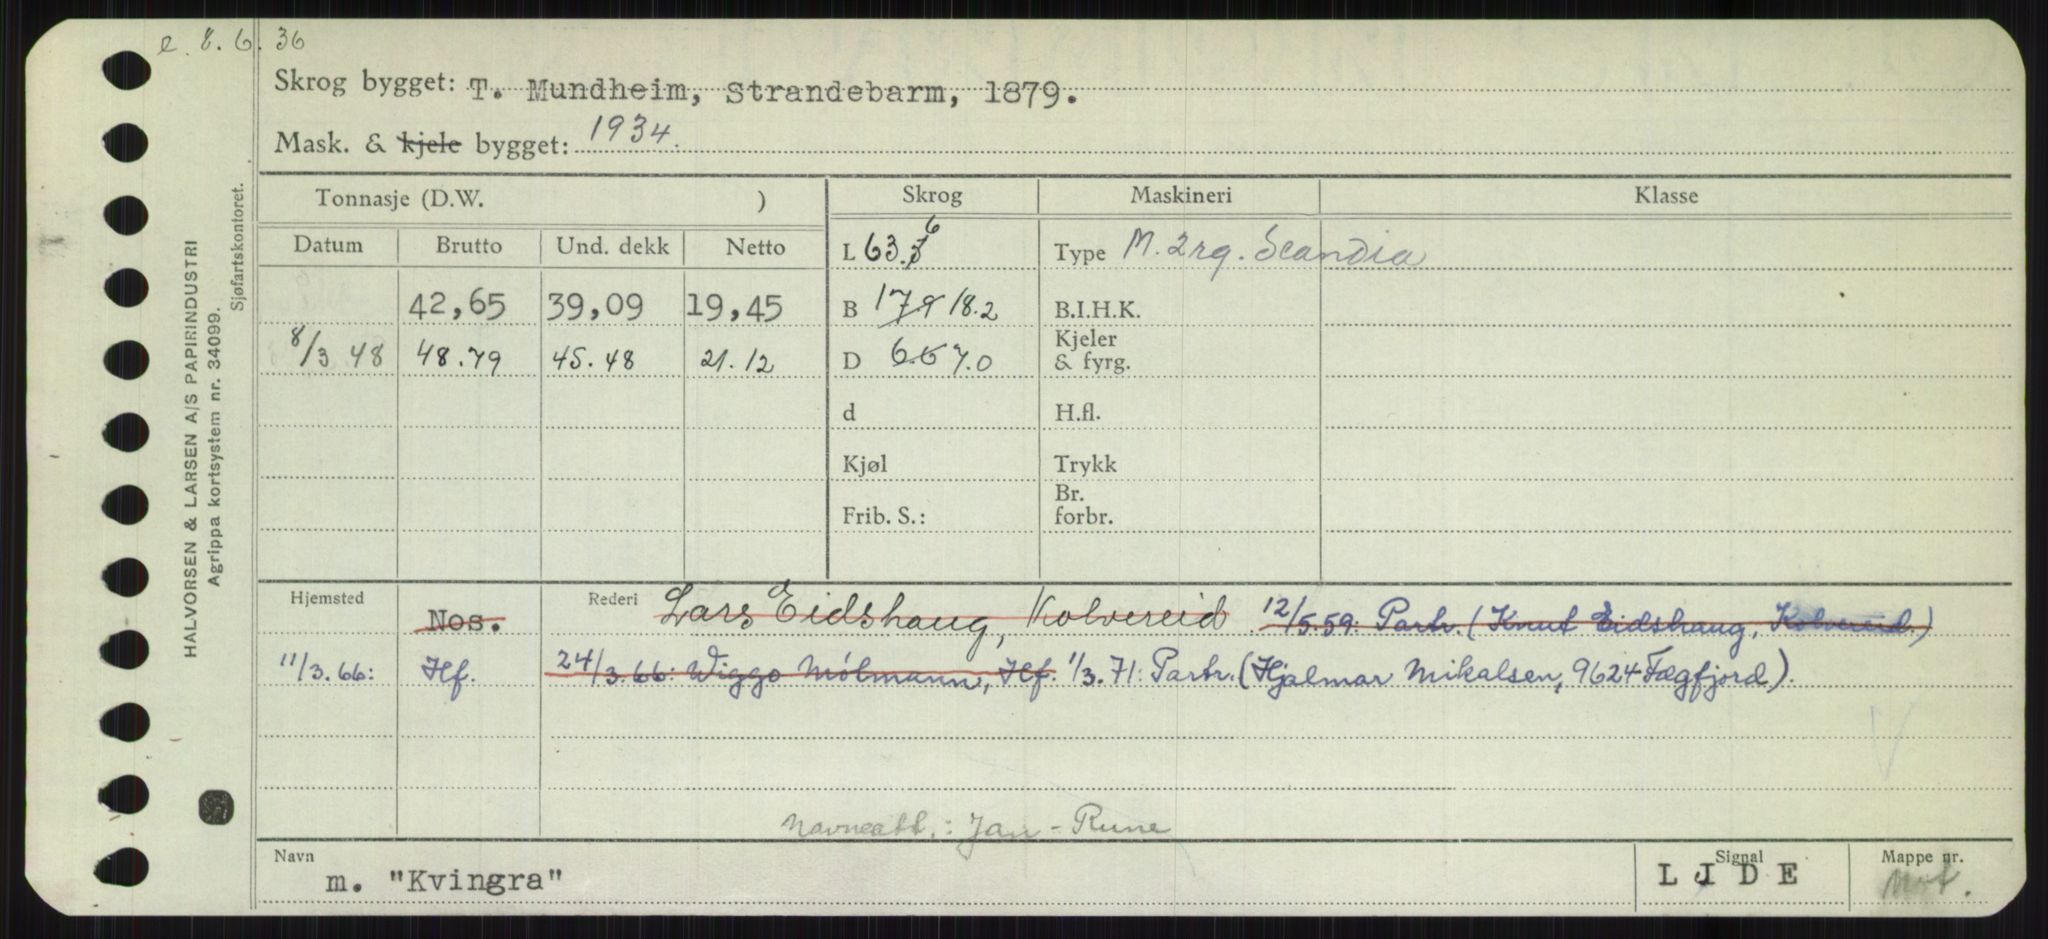 e. 8.6.36
Skrog bygget: T. Mundheim, Strandebarm, 1879.
Mask. & kjele bygget: 1934.
HALVORSEN & LARSEN A/S PAPIRINDUSTRI
Agrippa kortsystem nr. 34099.
Sjøfartskontoret.
Tonnasje (D.W. ) Skrog Maskineri Klasse
Datum Brutto Und. dekk Netto L 63.3 6 Type M. 2rg. Scandia
42,65 39,09 19,45 B 17.9 18.2 B.I.H.K.
8/3 48 48.79 45.48 21.12 D 6.6 7.0 Kjeler & fyrg.
d H.fl.
Kjøl Trykk
Frib. S.: Br. forbr.
Hjemsted Nos. Rederi Lars Eidshaug, Kolvereid 12/5.59: Partr. (Knut Eidshaug, Kolvereid.)
11/3.66: Hf. 24/3.66: Wiggo Mölmann, Hf. 1/3.71: Partr. (Hjalmar Mikalsen, 9624 Fægfjord).
Navneatt.: Jan-Rune
Navn m. "Kvingra" Signal LJDE Mappe nr. Mot.